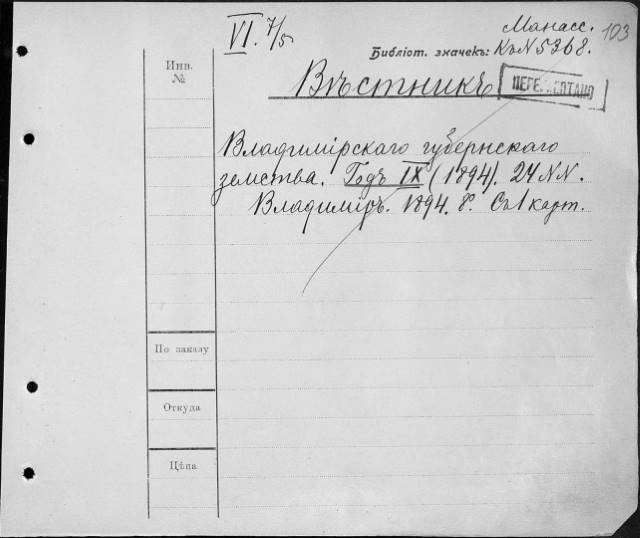 VI. 7/5
Манасс.
103
Библіот. значекъ: К. N 5368.
Вѣстникъ
ПЕРЕ
Инв.
№
Владимірскаго губернскаго
земства. Годъ IX (1894). 24 NN.
Владиміръ. 1894. 8°. Съ 1 карт.
По заказу
Откуда
Цѣна